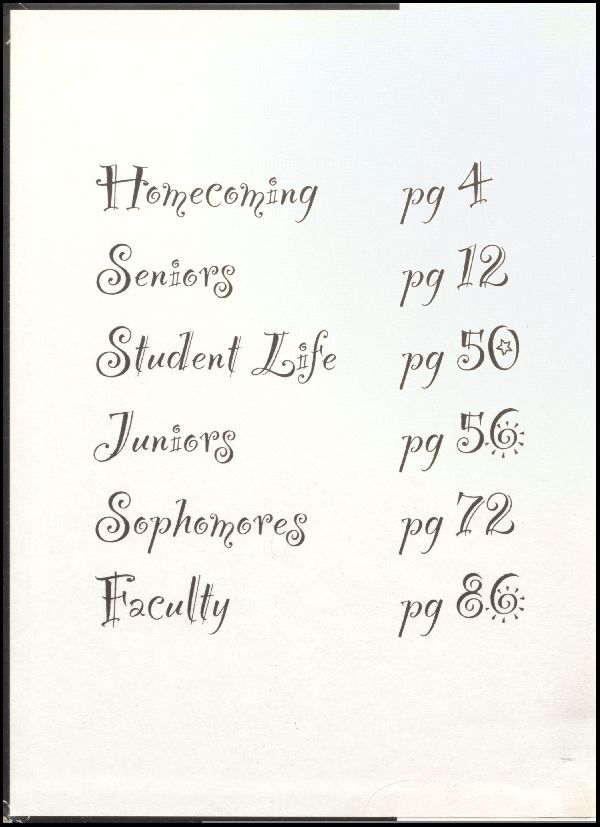 Homecoming pg 4
Seniors pg 12
Student Life pg 50
Juniors pg 56
Sophomores pg 72
Faculty pg 86